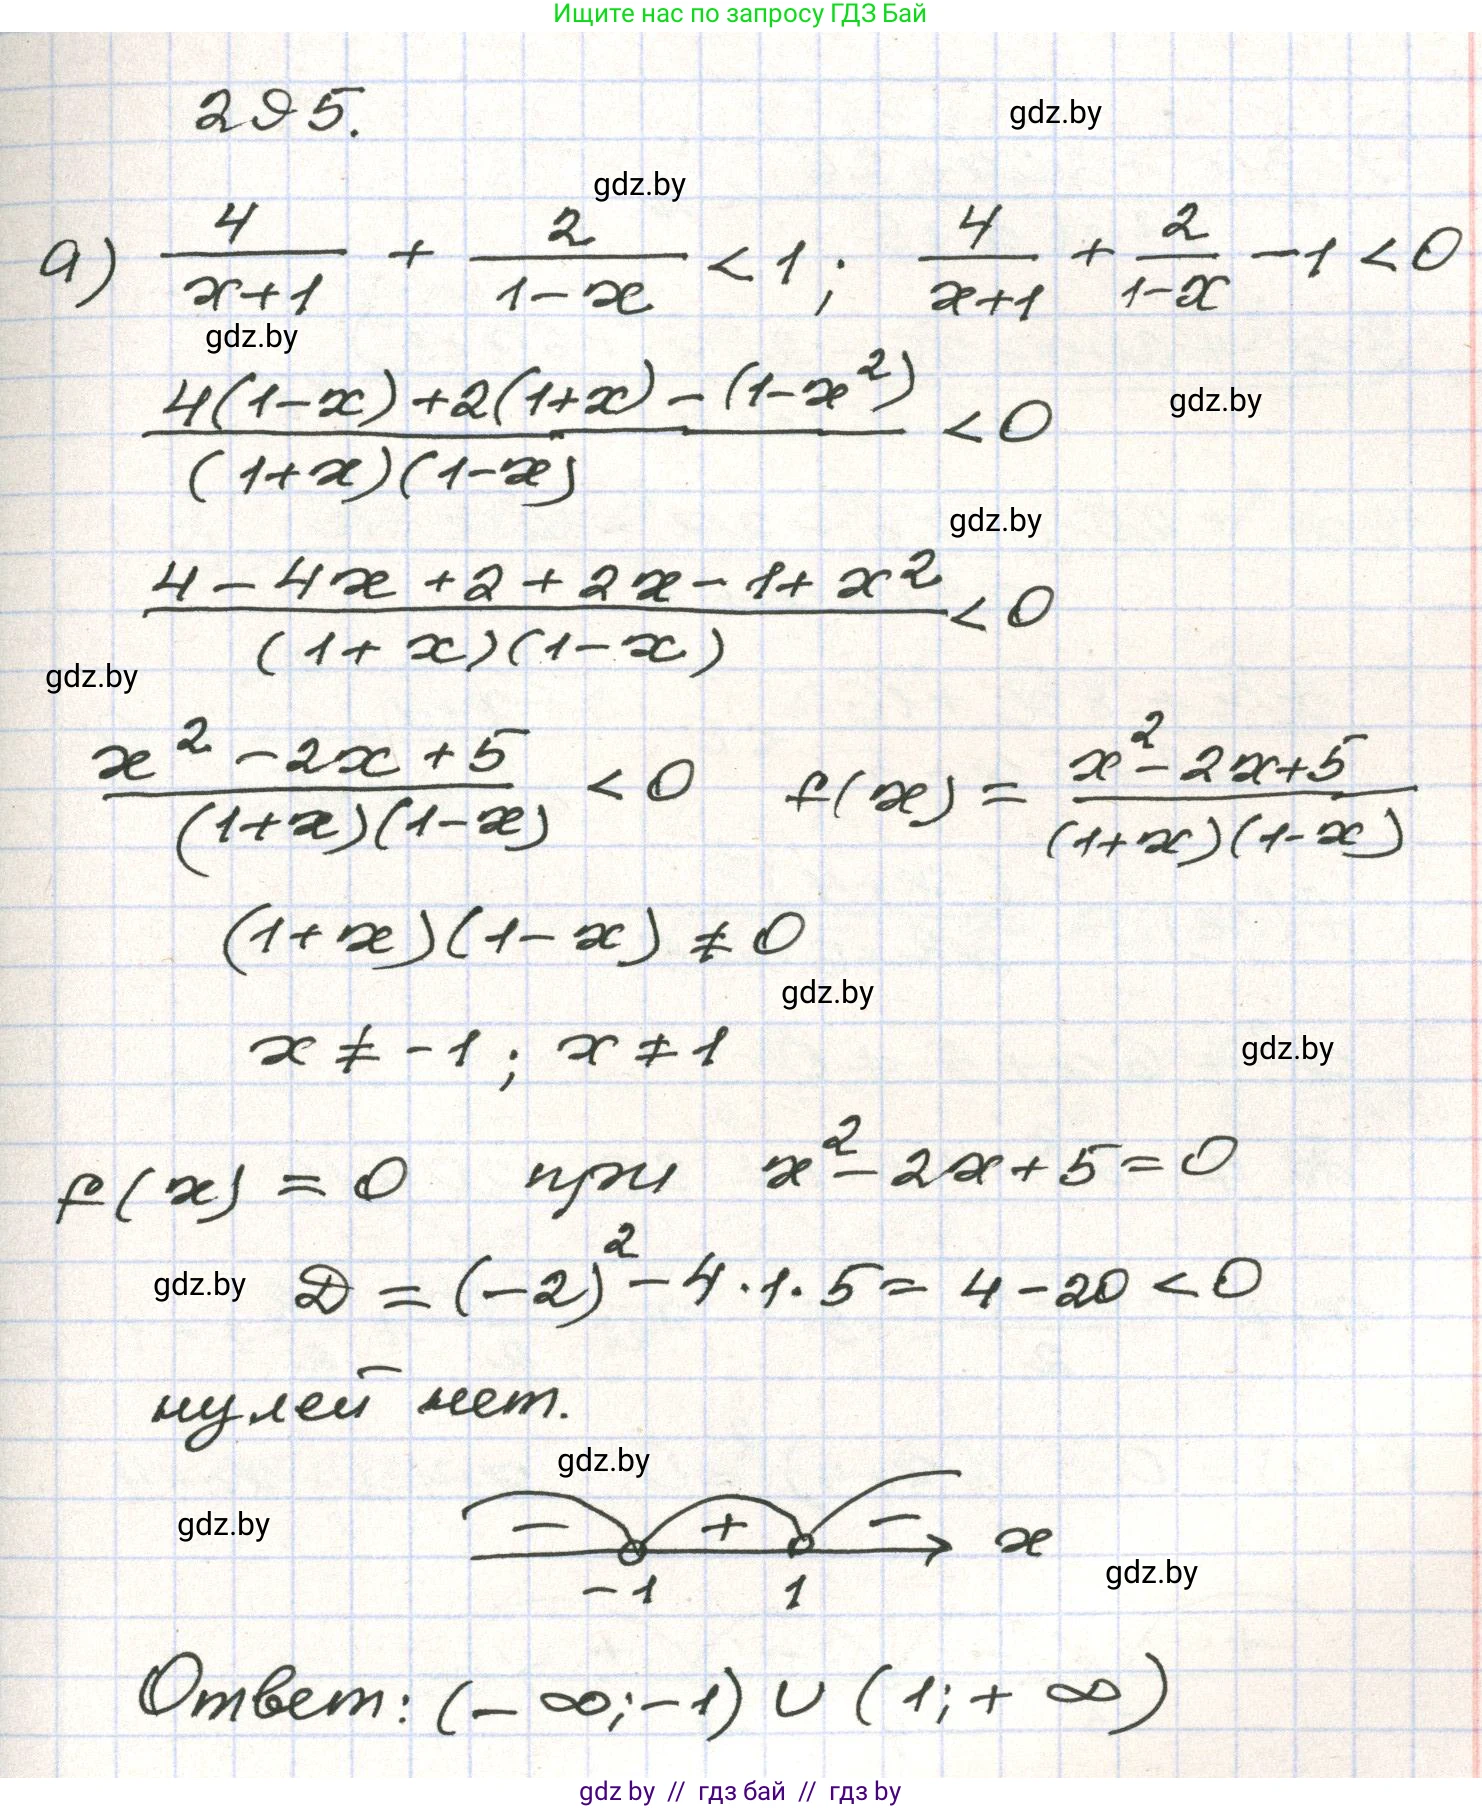 Ищите нас по запросу ГДЗ Бай
295.
gdz.by
gdz.by
а) 4/(x+1) + 2/(1-x) < 1; 4/(x+1) + 2/(1-x) - 1 < 0
gdz.by
(4(1-x)+2(1+x)-(1-x²))/((1+x)(1-x)) < 0
gdz.by
gdz.by
(4-4x+2+2x-1+x²)/((1+x)(1-x)) < 0
gdz.by
(x²-2x+5)/((1+x)(1-x)) < 0 f(x) = (x²-2x+5)/((1+x)(1-x))
(1+x)(1-x) ≠ 0
gdz.by
x ≠ -1; x ≠ 1
gdz.by
f(x) = 0 при x²-2x+5=0
gdz.by
D = (-2)²-4·1·5 = 4-20 < 0
нулей нет.
gdz.by
gdz.by
- + - x
-1 1
gdz.by
Ответ: (-∞;-1) ∪ (1;+∞)
gdz by // гдз бай // гдз by